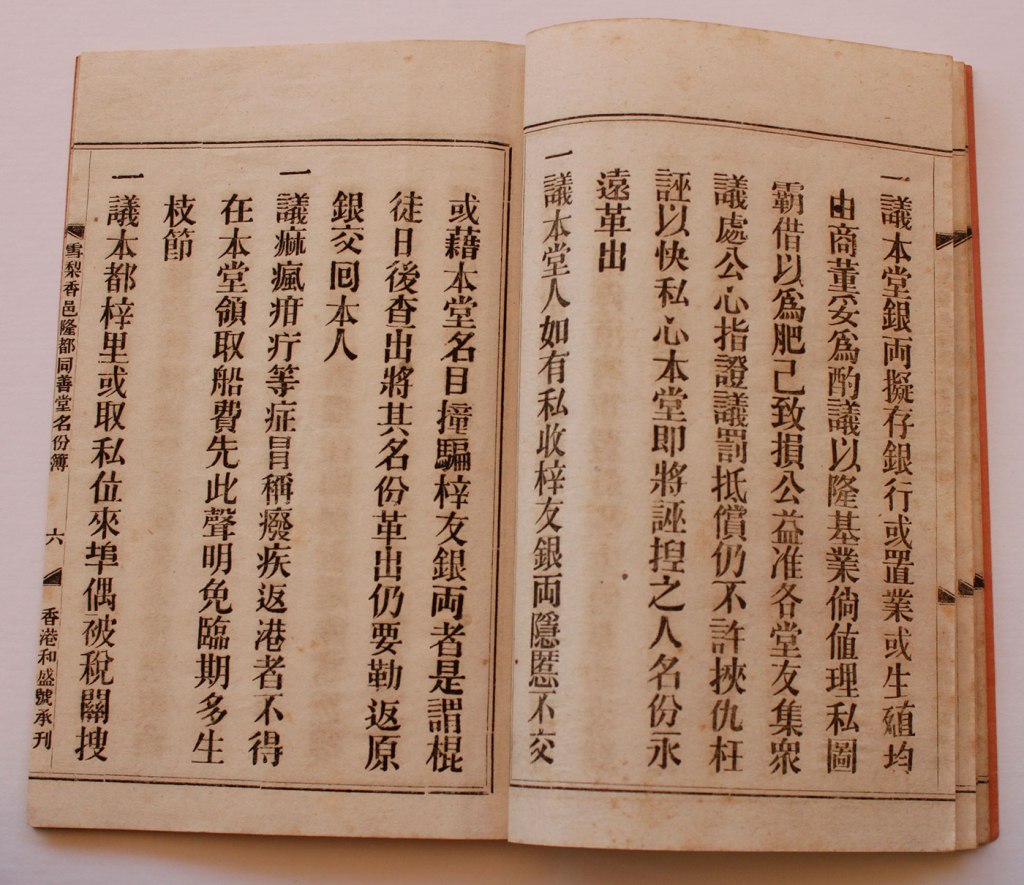 一議本堂銀両擬存銀行或置業或生殖均
由商董妥為酌議以隆基業倘值理私圖
霸借以為肥己致損公益准各堂友集衆
議處公心指證議罰抵償仍不許挾仇枉
誣以快私心本堂即將誣揑之人名份永
遠革出
一議本堂人如有私收梓友銀両隱慝不交
或藉本堂名目撞騙梓友銀両者是謂棍
徒日後查出將其名份革出仍要勒返原
銀交囘本人
一議痲瘋疳疔等症冒稱癈疾返港者不得
在本堂領取船費先此聲明免臨期多生
枝節
一議本都梓里或取私位來埠偶被稅關搜
雪梨香邑隆都同善堂名份簿
六
香港和盛號承刊